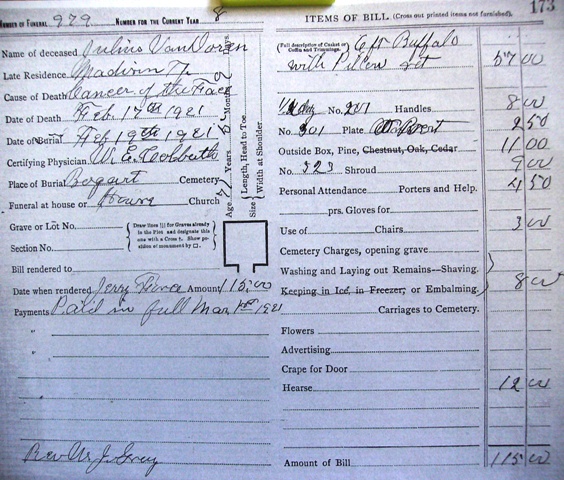 NUMBER OF FUNERAL 979 NUMBER FOR THE CURRENT YEAR 8
Name of deceased Julius VanDoren
Late Residence Madison Tp
Cause of Death Cancer of the Face
Date of Death Feb 17th 1921
Date of Burial Feb 19th 1921
Certifying Physician W. E.
Place of Burial Bogart Cemetery
Funeral at house or House Church
Grave or Lot No.
Section No.
Draw lines for Graves already in the Plot and designate this one with a Cross †. Show position of monument by □.
Bill rendered to
Date when rendered Jerry Amount 115.00
Payments Paid in full Mar 1921
"
"
"
Rev W. J. Gray
Age Years Months Days.
Size Length, Head to Toe
Width at Shoulder
173
ITEMS OF BILL (Cross out printed items not furnished).
(Full description of Casket or Coffin and Trimmings. 6 ft Buffalo
with Pillow set 57 00
No. 201 Handles 8 00
No. 301 Plate 2 50
Outside Box, Pine, Chestnut, Oak, Cedar 11 00
No. 323 Shroud 9 00
Personal Attendance Porters and Help. 4 50
prs. Gloves for
Use of Chairs 3 00
Cemetery Charges, opening grave
Washing and Laying out Remains—Shaving.
Keeping in Ice, in Freezer, or Embalming. 8 00
Carriages to Cemetery.
Flowers
Advertising
Crape for Door
Hearse 12 00
Amount of Bill 115 00